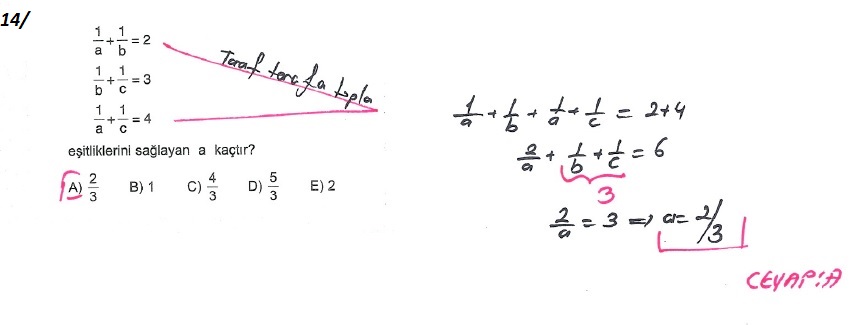 14/
1/a + 1/b = 2
1/b + 1/c = 3
1/a + 1/c = 4
Taraf tarafa topla
eşitliklerini sağlayan a kaçtır?
A) 2/3 B) 1 C) 4/3 D) 5/3 E) 2
1/a + 1/b + 1/a + 1/c = 2+4
2/a + 1/b + 1/c = 6
3
2/a = 3 ⇒ a = 2/3
CEVAP:A